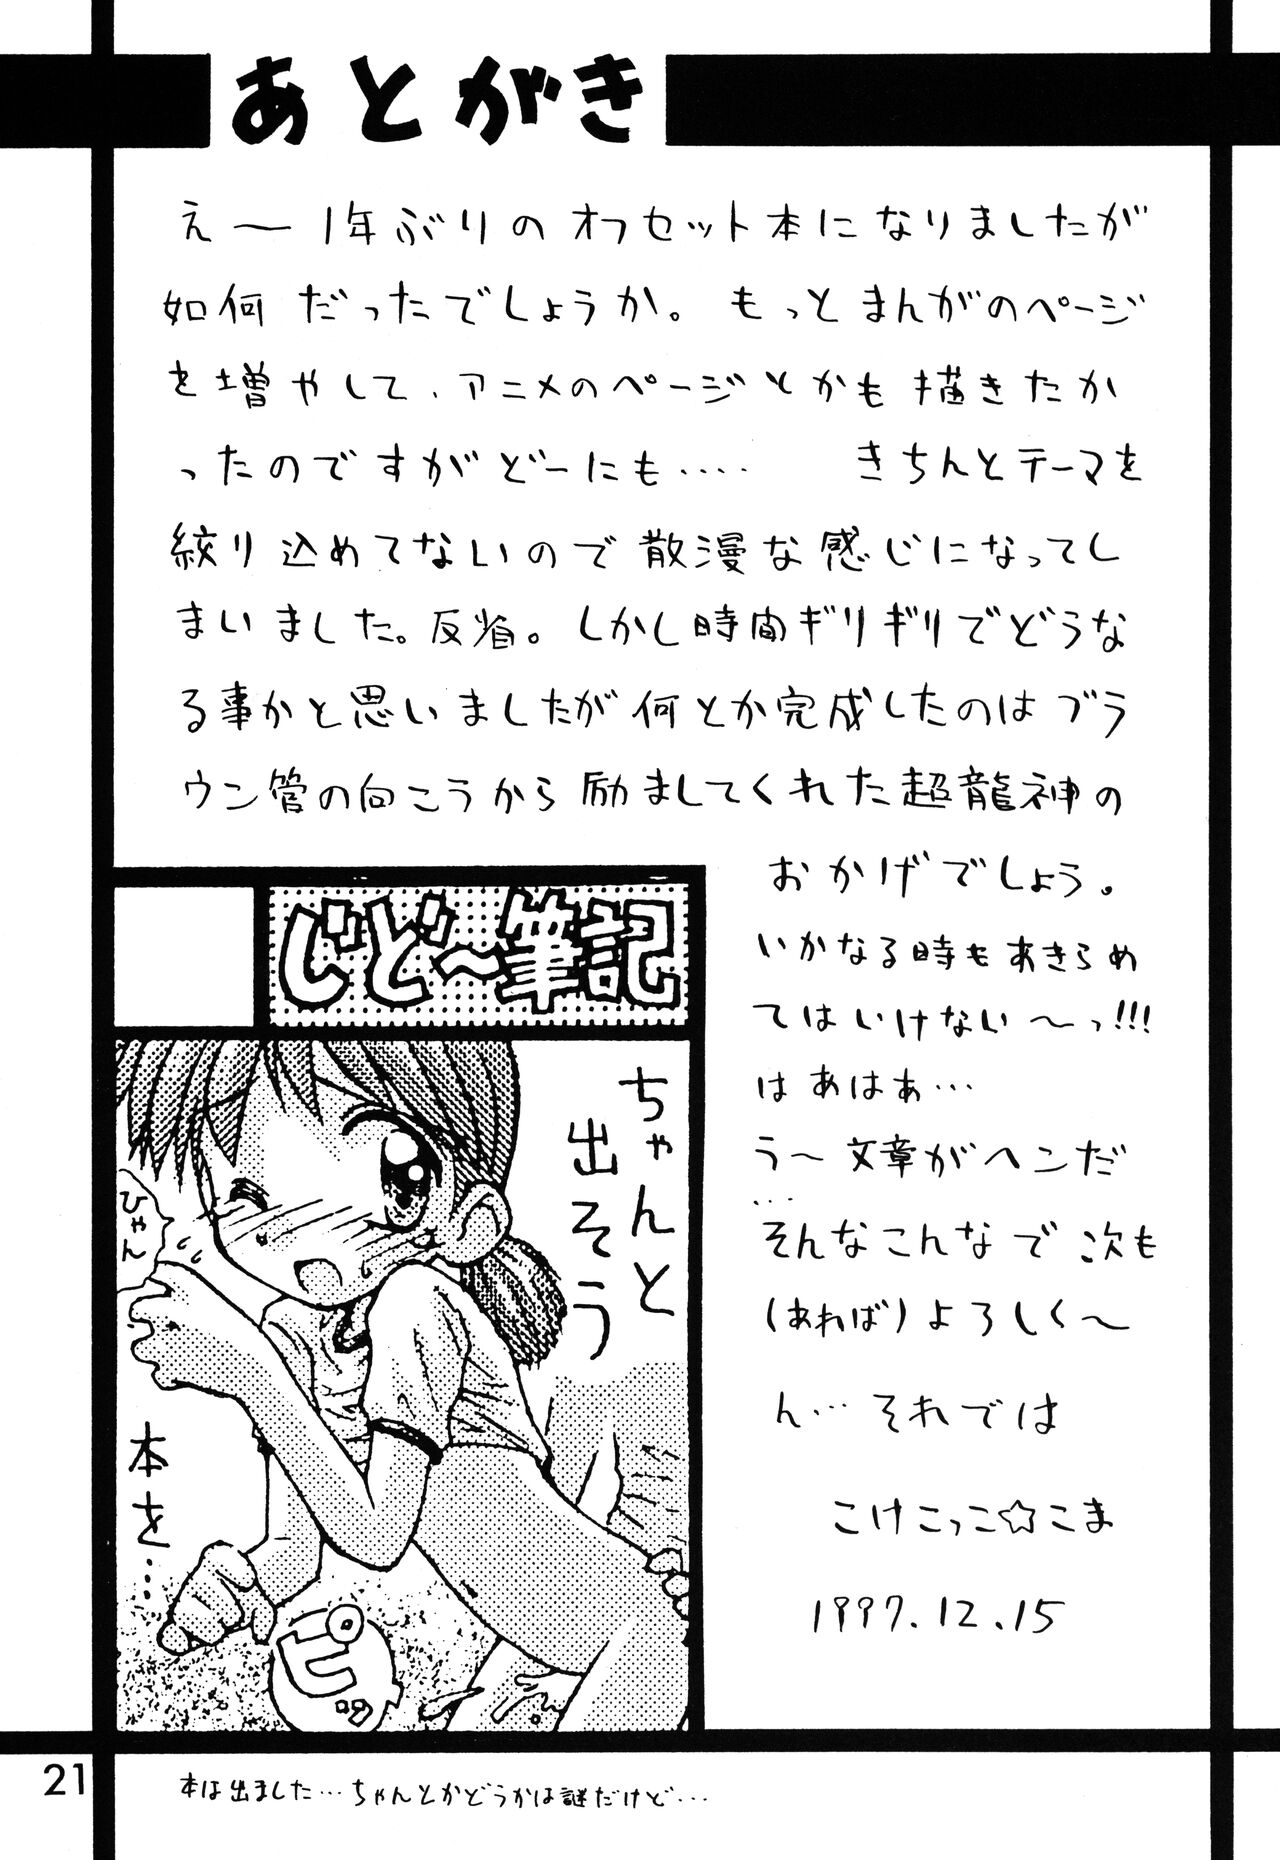 あとがき
え〜1年ぶりのオフセット本になりましたが
如何だったでしょうか。もっとまんがのページ
を増やして、アニメのページとかも描きたか
ったのですがどーにも‥‥ きちんとテーマを
絞り込めてないので散漫な感じになってし
まいました。反省。しかし時間ギリギリでどうな
る事かと思いましたが何とか完成したのはブラ
ウン管の向こうから励ましてくれた超龍神の
おかげでしょう。
いかなる時もあきらめ
てはいけない〜っ!!!
はあはぁ…
う〜文章がヘンだ
…
そんなこんなで次も
(あれば)よろしく〜
ん…それでは
こけこっこ☆こま
1997.12.15
じど〜筆記
ちゃんと
出そう
本を…
ひゃん
ピッ
本は出ました…ちゃんとかどうかは謎だけど…
21